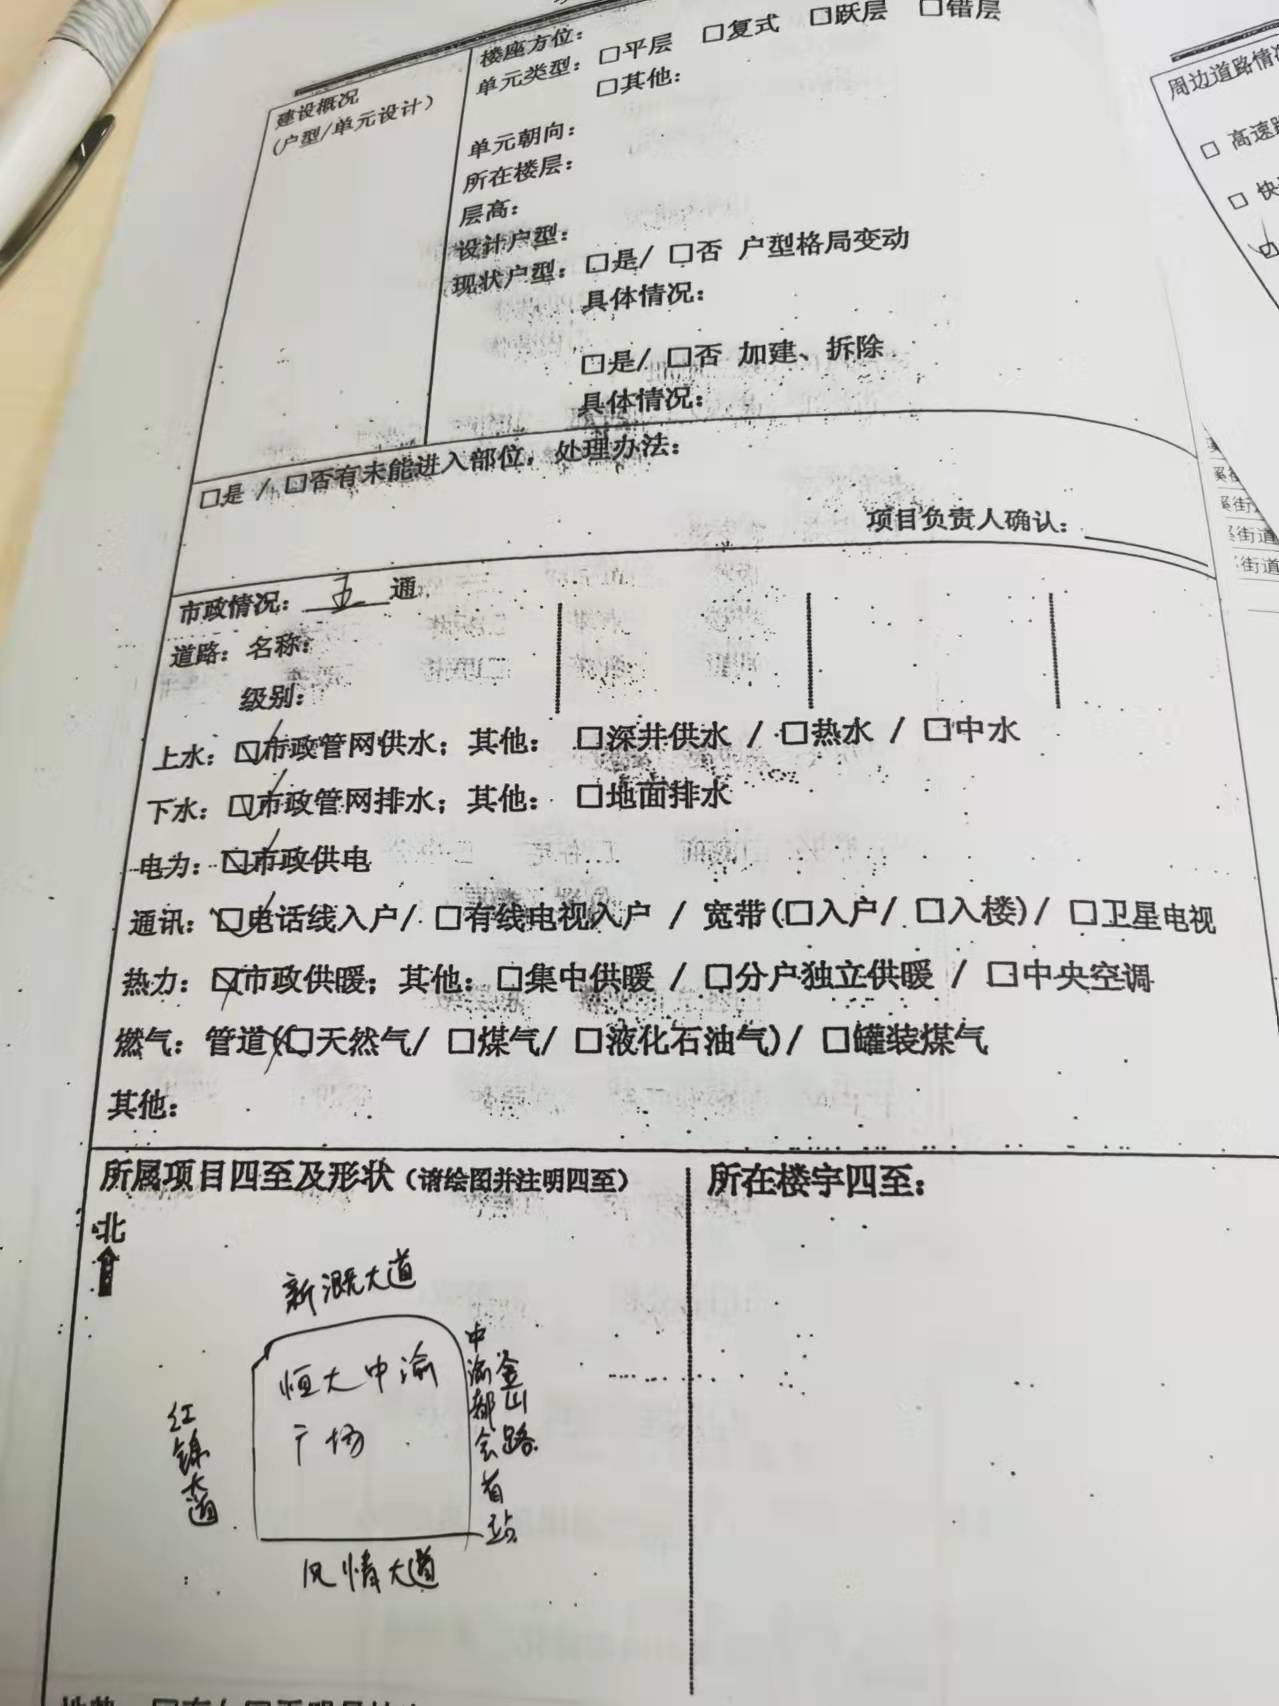 楼座方位：
建设概况
(户型/单元设计)
单元类型：□平层 □复式 □跃层 □错层
□其他：
单元朝向：
所在楼层：
层高：
设计户型：
现状户型：□是/ □否 户型格局变动
具体情况：
□是/ □否 加建、拆除
具体情况：
□是 / □否有未能进入部位，处理办法：
项目负责人确认：
市政情况：五通
道路：名称：
级别：
上水：☑市政管网供水；其他： □深井供水 / □热水 / □中水
下水：☑市政管网排水；其他： □地面排水
电为：☑市政供电
通讯：☑电话线入户/ □有线电视入户 / 宽带(□入户/ □入楼)/ □卫星电视
热力：☑市政供暖；其他：□集中供暖 / □分户独立供暖 / □中央空调
燃气：管道(☑天然气/ □煤气/ □液化石油气)/ □罐装煤气
其他：
所属项目四至及形状（请绘图并注明四至）
北
新溉大道
恒大中渝
广场
红锦大道
金山路
中渝都会首站
风情大道
所在楼宇四至：
周边道路情
□ 高速
□ 快
街道
街道
街道